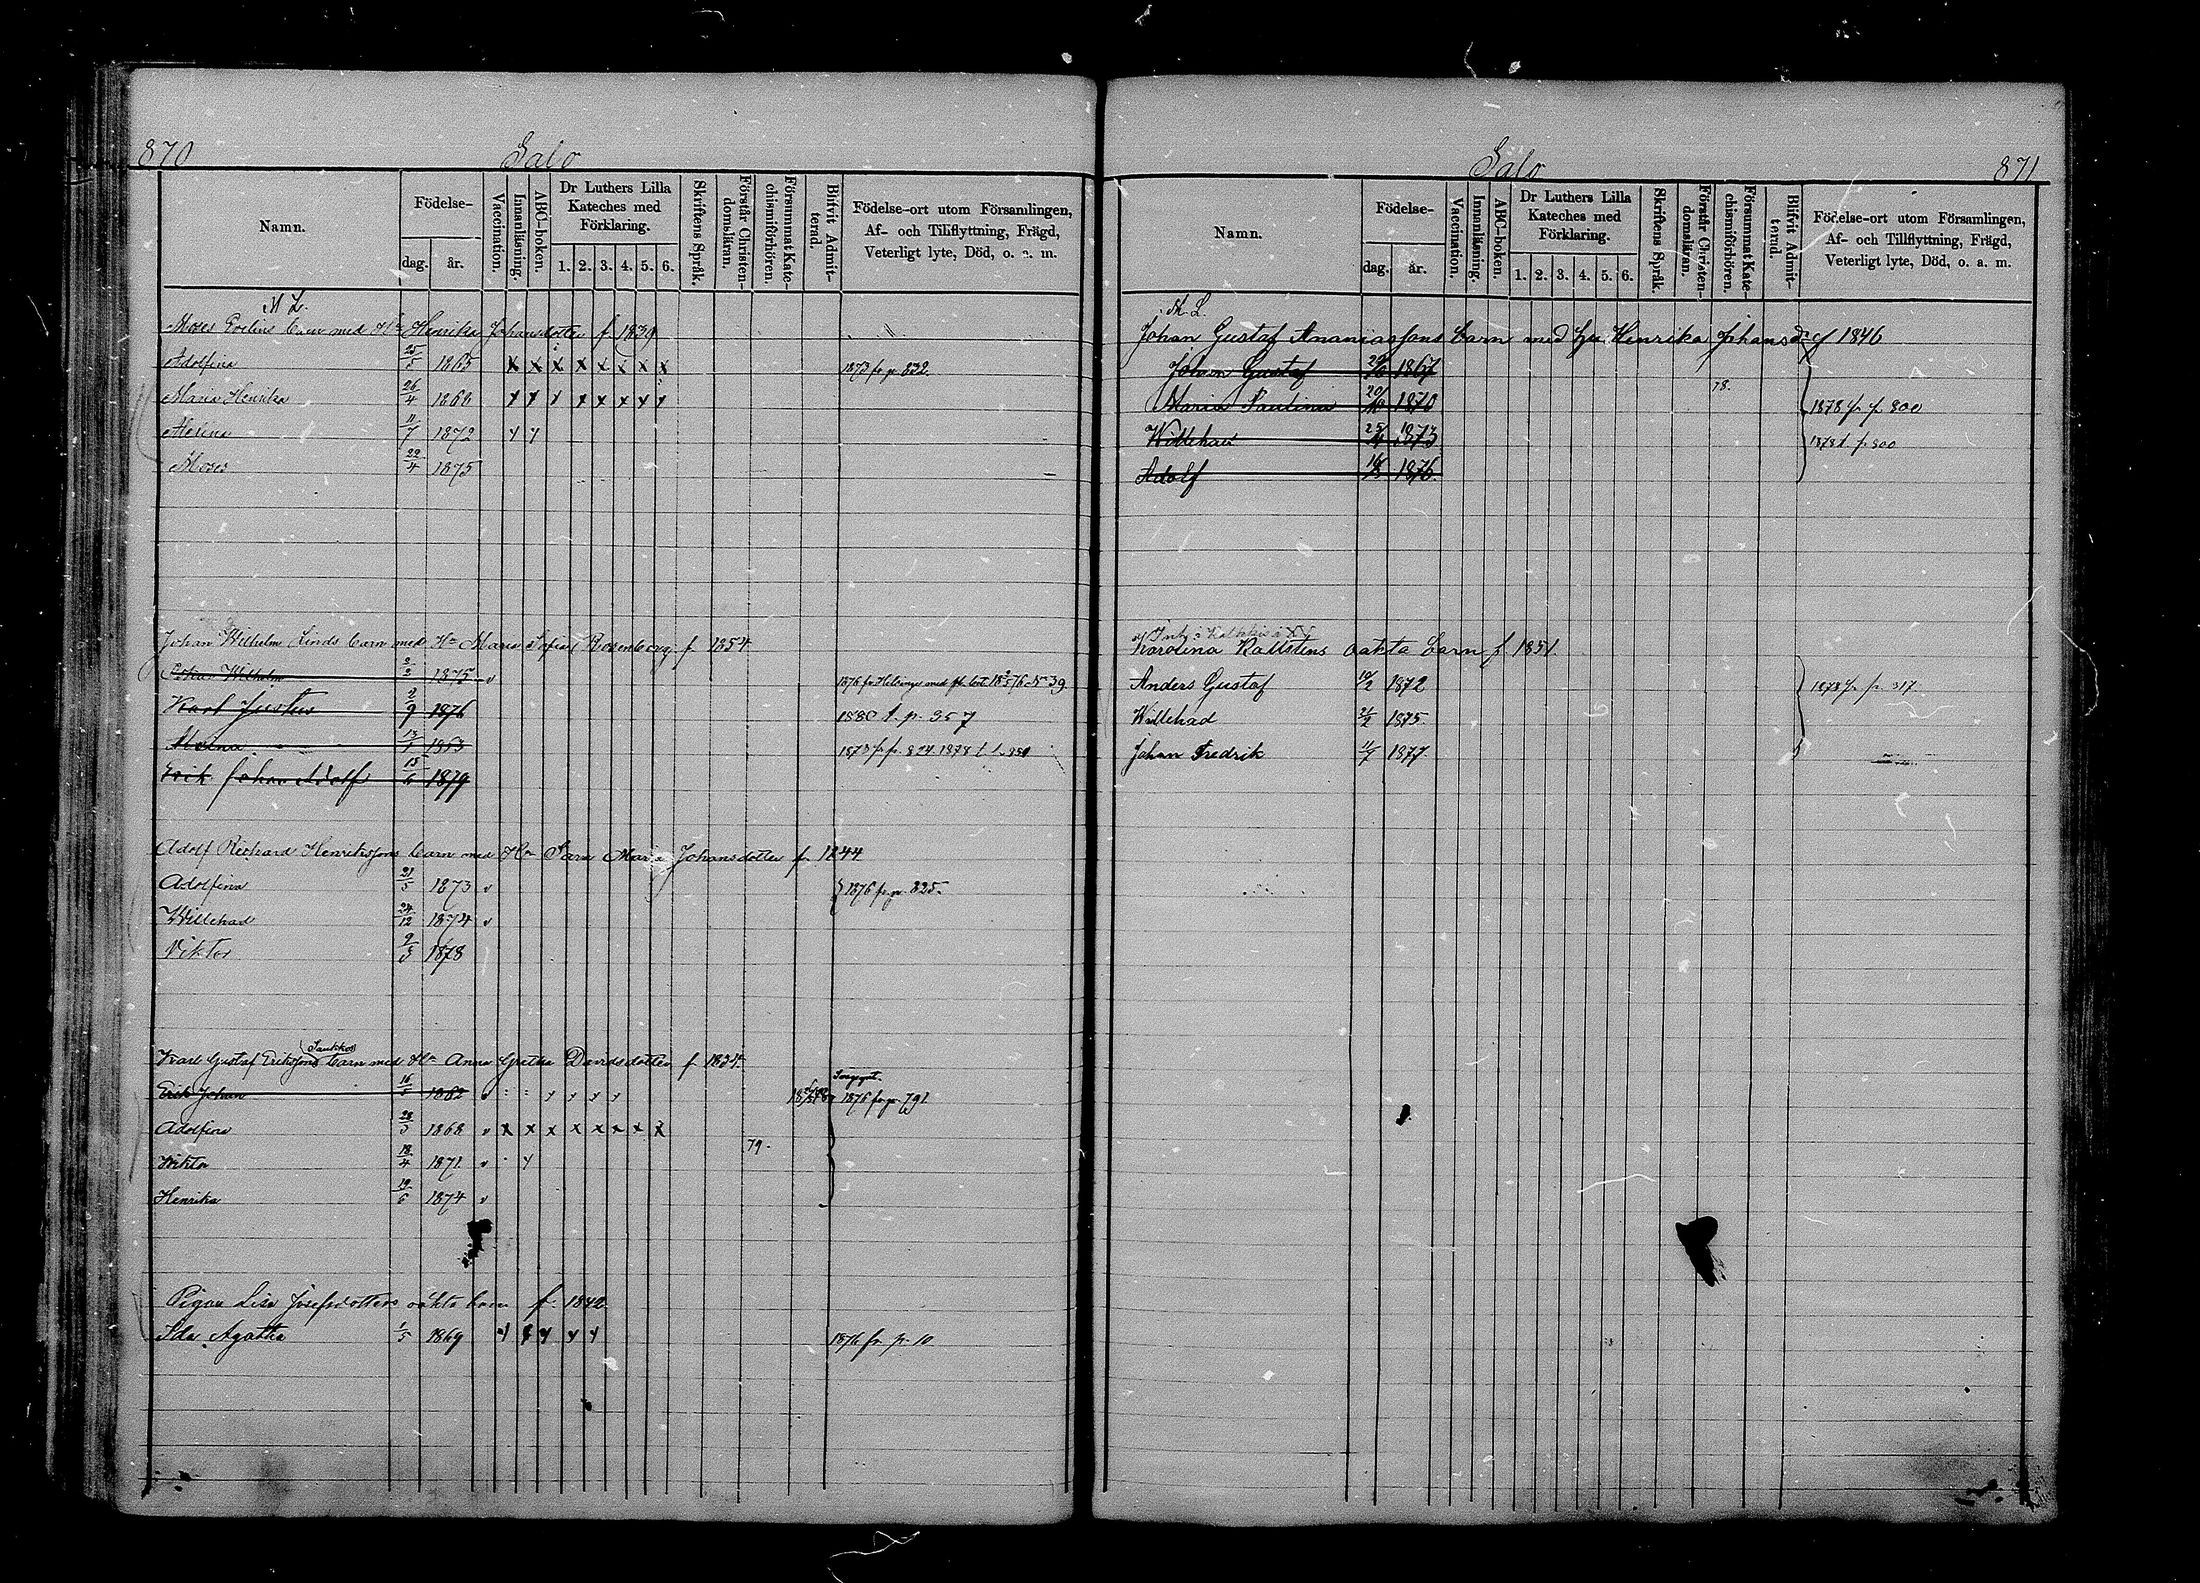 870
Salo
Namn.
Födelse-
dag.
år.
Vaccination.
Innanläsning.
ABC-boken.
Dr Luthers Lilla
Kateches med
Förklaring.
1. 2. 3. 4. 5. 6.
Skriftens Språk.
Förstår Christen-
domsläran.
Försummat Kate-
chismiförhören.
Blifvit Admit-
terad.
Födelse-ort utom Församlingen,
Af- och Tillflyttning, Frägd,
Veterligt lyte, Död, o. a. m.
M L.
Moses barn med Hu Henrika Johansdotter f 1839
Adolfina 25/5 1865 x x x x x x x x 1873 fr p. 832.
Maria Henrika 26/4 1868
11/7 1872
Moses 22/4 1875
Johan Wilhelm Linds barn med Hu Maria Sofia Rosenberg f 1854
Johan Wilhelm 2/2 1875 v 1876 fr Helsinge med No 39
Karl Justus 2/9 1876 1880 t. p. 357
13/1 1873 fr p. 824. 1878 t.
Erik Johan Adolf 15/6 1879
Adolf Richard Henrikssons barn med Hu Sara Maria Johansdotter f. 1844
Adolfina 21/5 1873 v 1876 fr p. 825.
Willehad 24/12 1874 v
Viktor 9/3 1878
Karl Gustaf Erikssons barn med Hu Anna Greta Davidsdotter f 1834
Erik Johan 16/5 1862 1876 fr p. 791
Adolfina 28/5 1868 v x x x x x x x x
79.
Viktor 18/4 1871. v
Henrika 19/6 1874 v
Pigan Lisa Josefsdotters oäkta barn f. 1842
Ida Agatha 1/5 1869 1876 fr p. 10
Salo
871
Namn.
Födelse-
dag.
år.
Vaccination.
Innanläsning.
ABC-boken.
Dr Luthers Lilla
Kateches med
Förklaring.
1. 2. 3. 4. 5. 6.
Skriftens Språk.
Förstår Christen-
domsläran.
Försummat Kate-
chismiförhören.
Blifvit Admit-
terad.
Födelse-ort utom Församlingen,
Af- och Tillflyttning, Frägd,
Veterligt lyte, Död, o. a. m.
M. L.
Johan Gustaf Ananiassons barn med hu Henrika Johansdr f 1846
Johan Gustaf 1867
78.
Maria Paulina 20/10 1870 1878 fr p 800
Willehad 25/4 1873
Adolf 1876.
Karolina Kallstens oäkta barn f 1851.
Anders Gustaf 10/2 1872 1878 fr p. 317
Willehad 21/2 1875.
Johan Fredrik 11/7 1877.